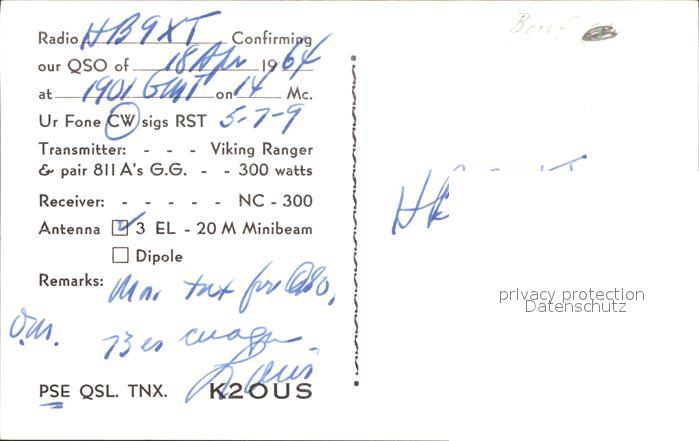 Radio HB9XT Confirming
our QSO of 18 Apr 1964
at 1901 GMT on 14 Mc.
Ur Fone CW sigs RST 5-7-9
Transmitter: - - - Viking Ranger
& pair 811A's G.G. - - 300 watts
Receiver: - - - - - NC - 300
Antenna 3 EL - 20 M Minibeam
Dipole
Remarks: tnx for QSO,
O.M. 73 es cuagn
PSE QSL. TNX. K2OUS
privacy protection
Datenschutz